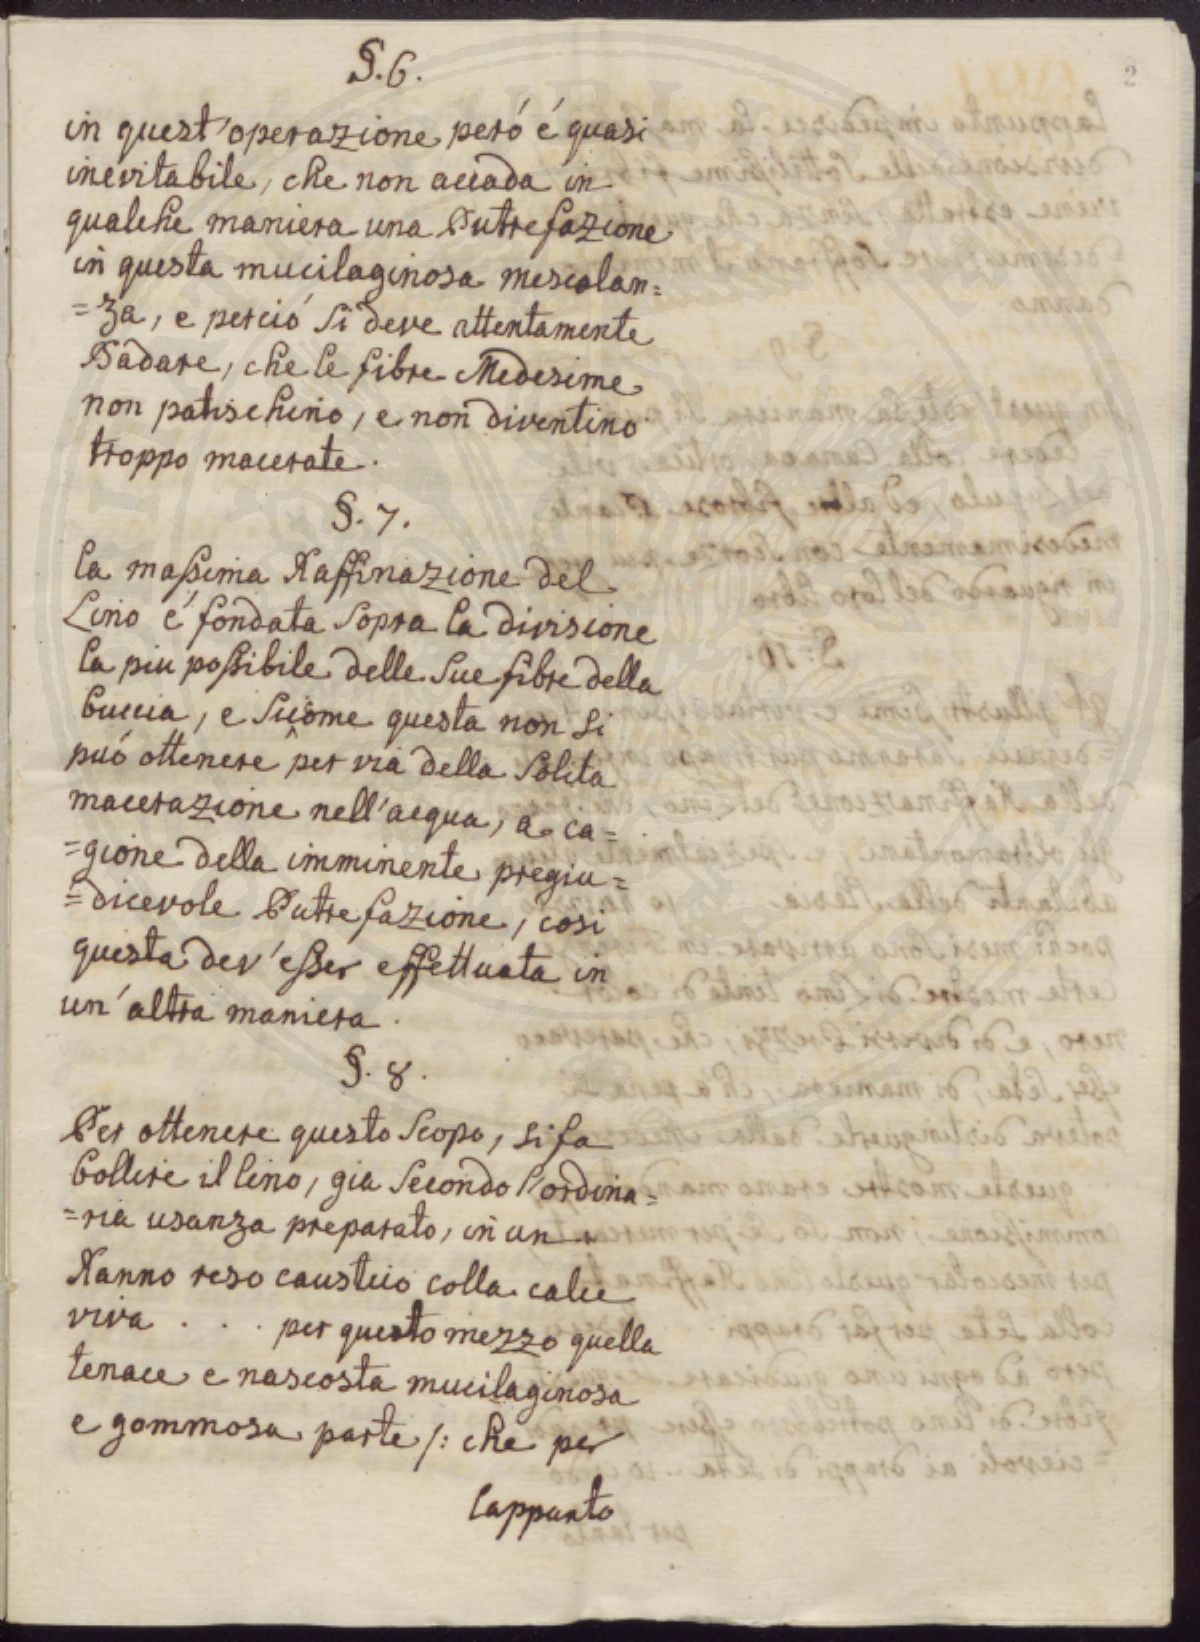 2
§. 6.
in quest'operazione peró é quasi
inevitabile, che non accada in
qualche maniera una Putrefazione
in questa mucilaginosa mescolan=
=za, e perció si deve attentamente
Badare, che le fibre Medesime
non patischino, e non diventino
troppo macerate.
§. 7.
la massima Raffinazione del
Lino é fondata sopra la divisione
la piu possibile delle sue fibre della
buccia, e siccome questa non si
puó ottenere per via della solita
macerazione nell'acqua, a ca=
=gione della imminente pregiu=
=dicevole Putrefazione, cosi
questa dev'esser effettuata in
un'altra maniera.
§. 8.
Per ottenere questo scopo, si fa
bollire il lino, gia secondo l'ordina=
=ria usanza preparato, in un
Ranno reso caustico colla calce
viva . . . per questo mezzo quella
tenace e nascosta mucilaginosa
e gommosa parte /: che per
lappunto